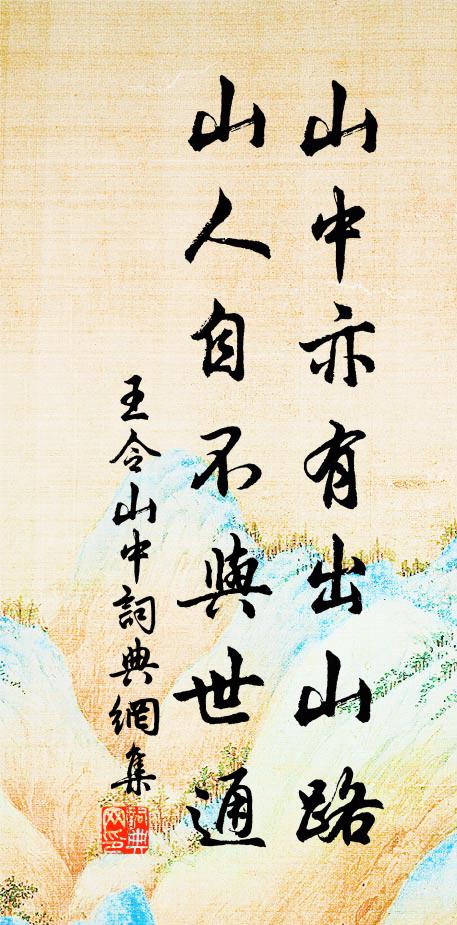 山中亦有出山路
山人自不與世通
王令山中詞典網集
詞典網印